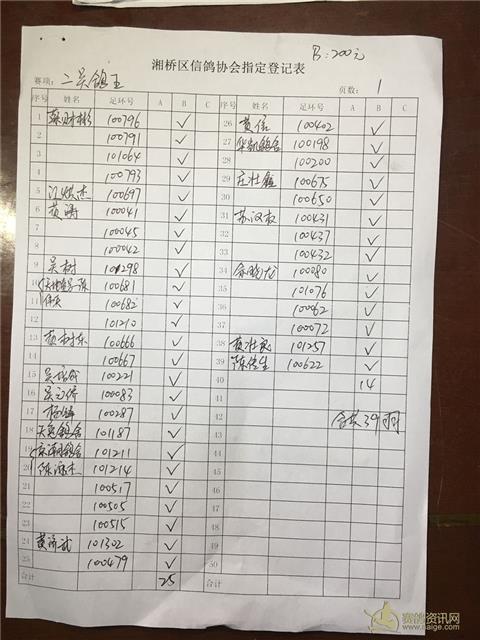 B：200元
湘桥区信鸽协会指定登记表
赛项： 二关鸽王 页数： 1
序号 姓名 足环号 A B C 序号 姓名 足环号 A B C
1 100796 √ 26 黄信 100402 √
2 100791 √ 27 华凯鸽舍 100198 √
3 101064 √ 28 100200 √
4 100793 √ 29 庄壮鑫 100675 √
5 江烘杰 100697 √ 30 100650 √
6 黄涛 100041 √ 31 苏汉权 100431 √
7 100045 √ 32 100437 √
8 100042 √ 33 100432 √
9 吴树 101298 √ 34 余晓龙 100080 √
10 100681 √ 35 101076 √
11 伟兵 100682 √ 36 100062 √
12 101210 √ 37 100072 √
13 黄树东 100666 √ 38 黄壮 101257 √
14 100667 √ 39 陈信生 100622 √
15 100221 √ 40 14
16 100083 √ 41
17 杨 100287 √ 42 合共39羽
18 鸽舍 101187 √ 43
19 鸽舍 101211 √ 44
20 陈 杰 101214 √ 45
21 100517 √ 46
22 100505 √ 47
23 100515 √ 48
24 黄济武 101302 √ 49
25 100479 √ 50
合计 25 合计
赛鸽资讯网
www.saige.com